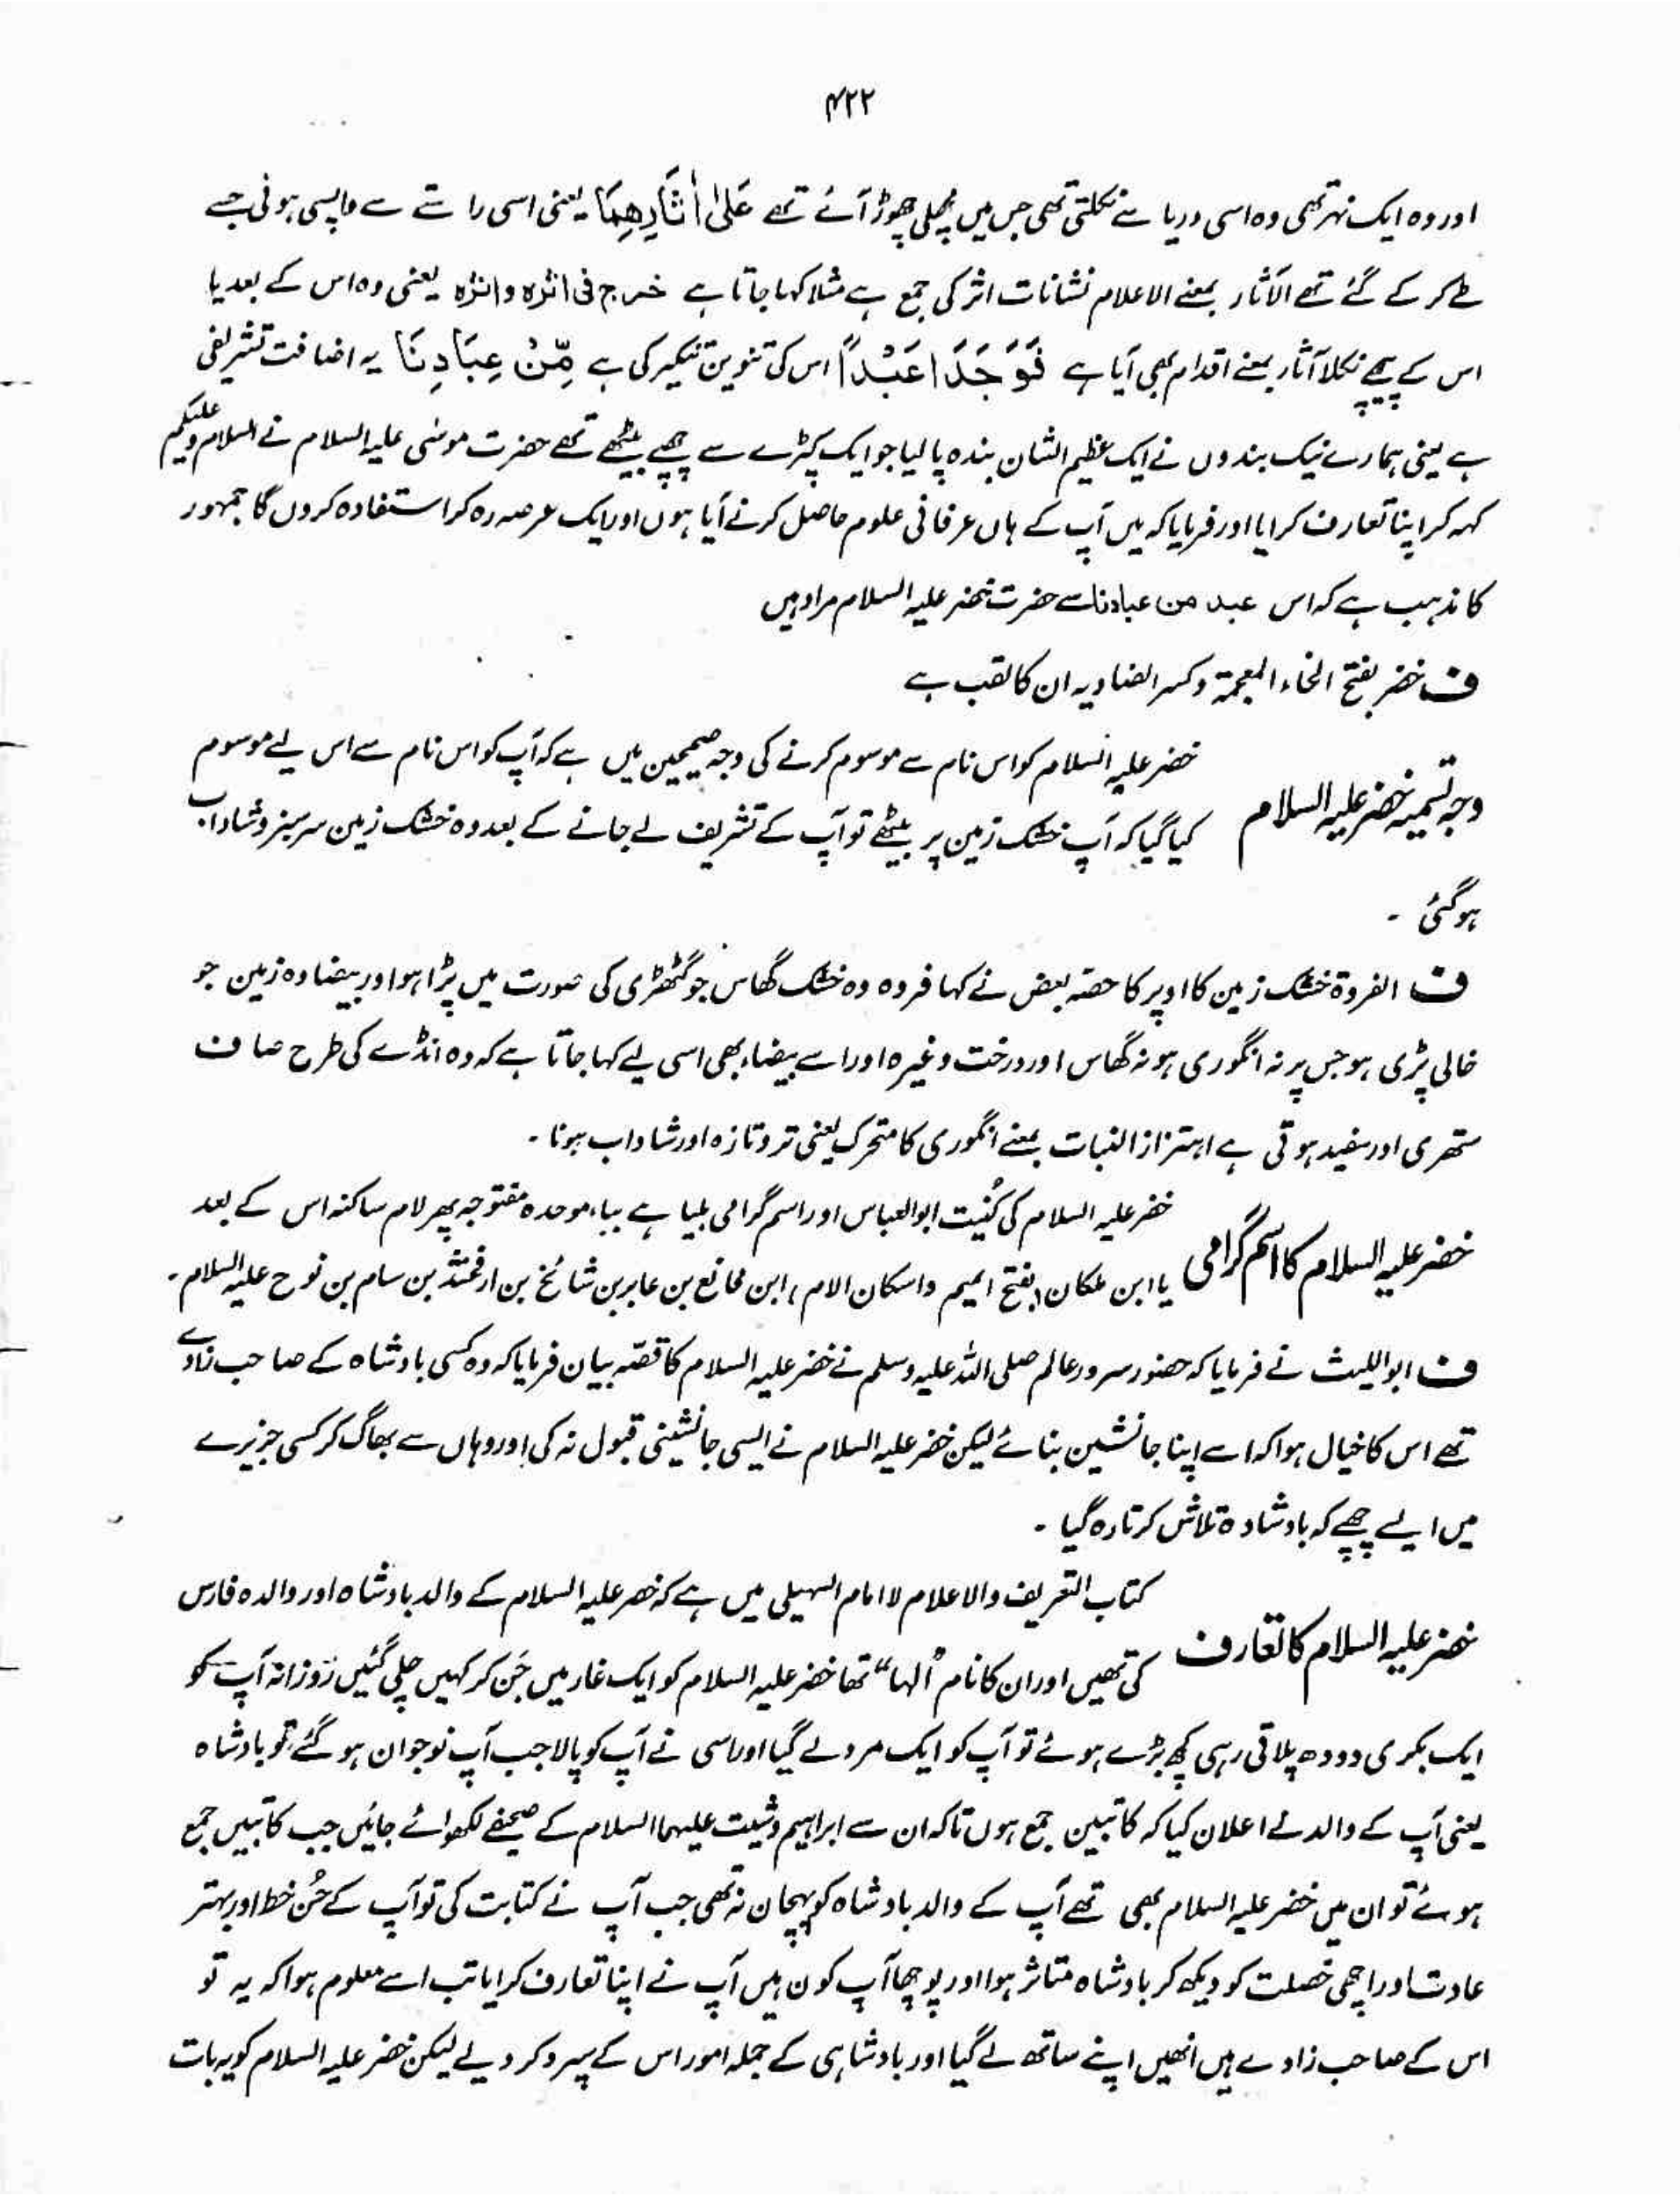 ۴۲۲
اور وہ ایک نہر تھی وہ اسی دریا سے نکلتی تھی جس میں مچھلی چھوڑ آئے تھے عَلٰی اٰثَارِھِمَا یعنی اسی راستے سے واپسی ہوئی جسے
طے کر کے گئے تھے الآثار بمعنے الاعلام نشانات اثر کی جمع ہے مثلا کہا جاتا ہے خرج فی اثرہ و اثرہ یعنی وہ اس کے بعد یا
اس کے پیچھے نکلا آثار بمعنے اقدام بھی آیا ہے فَوَجَدَا عَبْدًا اس کی تنوین تنکیر کی ہے مِّنْ عِبَادِنَا یہ اضافت تشریفی
ہے یعنی ہمارے نیک بندوں نے ایک عظیم الشان بندہ پا لیا جو ایک کپڑے سے چھپے بیٹھے تھے حضرت موسٰی علیہ السلام نے السلام علیکم
کہہ کر اپنا تعارف کرایا اور فرمایا کہ میں آپ کے ہاں عرفانی علوم حاصل کرنے آیا ہوں اور ایک عرصہ رہ کر استفادہ کروں گا جمہور
کا مذہب ہے کہ اس عبد من عبادنا سے حضرت خضر علیہ السلام مراد ہیں
ف خضر بفتح الخاء المعجمۃ و کسر الضاد یہ ان کا لقب ہے
وجہ تسمیہ خضر علیہ السلام خضر علیہ السلام کو اس نام سے موسوم کرنے کی وجہ صحیحین میں ہے کہ آپ کو اس نام سے اس لیے موسوم
کیا گیا کہ آپ خشک زمین پر بیٹھے تو آپ کے تشریف لے جانے کے بعد وہ خشک زمین سرسبز و شاداب
ہو گئی ۔
ف الفروۃ خشک زمین کا اوپر کا حصہ بعض نے کہا فروہ وہ خشک گھاس جو گٹھڑی کی صورت میں پڑا ہو اور بیضا وہ زمین جو
خالی پڑی ہو جس پر نہ انگوری ہو نہ گھاس اور درخت وغیرہ اور اسے بیضاء بھی اسی لیے کہا جاتا ہے کہ وہ انڈے کی طرح صاف
ستھری اور سفید ہوتی ہے اہتزاز النبات بمعنے انگوری کا متحرک یعنی تر و تازہ اور شاداب ہونا ۔
خضر علیہ السلام کا اسم گرامی خضر علیہ السلام کی کُنیت ابوالعباس اور اسم گرامی بلیا ہے بباء موحدہ مفتوحہ پھر لام ساکنہ اس کے بعد
یا ابن ملکان (بفتح المیم واسکان الام) ابن فانع بن عابر بن شائخ بن ارفخشذ بن سام بن نوح علیہ السلام ۔
ف ابواللیث نے فرمایا کہ حضور سرور عالم صلی اللہ علیہ وسلم نے خضر علیہ السلام کا قصّہ بیان فرمایا کہ وہ کسی بادشاہ کے صاحب زادے
تھے اس کا خیال ہوا کہ اسے اپنا جانشین بنائے لیکن خضر علیہ السلام نے ایسی جانشینی قبول نہ کی اور وہاں سے بھاگ کر کسی جزیرے
میں ایسے چھپے کہ بادشادہ تلاش کرتا رہ گیا ۔
خضر علیہ السلام کا تعارف کتاب التعریف والاعلام لا امام السہیلی میں ہے کہ خضر علیہ السلام کے والد بادشاہ اور والدہ فارس
کی تھیں اور ان کا نام "الہا" تھا خضر علیہ السلام کو ایک غار میں جَن کر کہیں چلی گئیں روزانہ آپ کو
ایک بکری دودھ پلاتی رہی کچھ بڑے ہوئے تو آپ کو ایک مرد لے گیا اور اسی نے آپ کو پالا جب آپ نوجوان ہو گئے تو بادشاہ
یعنی آپ کے والد نے اعلان کیا کہ کاتبین جمع ہوں تاکہ ان سے ابراہیم و شیث علیہما السلام کے صحیفے لکھوائے جائیں جب کاتبیں جمع
ہوئے تو ان میں خضر علیہ السلام بھی تھے آپ کے والد بادشاہ کو پہچان نہ تھی جب آپ نے کتابت کی تو آپ کے حُسن خط اور بہتر
عادت اور اچھی خصلت کو دیکھ کر بادشاہ متاثر ہوا اور پوچھا آپ کون ہیں آپ نے اپنا تعارف کرایا تب اسے معلوم ہوا کہ یہ تو
اس کے صاحب زادے ہیں انھیں اپنے ساتھ لے گیا اور بادشاہی کے جملہ امور اس کے سپرد کر دیے لیکن خضر علیہ السلام کو یہ بات